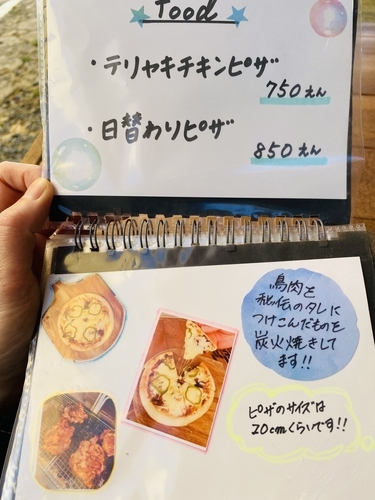 Food
・テリヤキチキンピザ
750えん
・日替わりピザ
850えん
鳥肉を
秘伝のタレに
つけこんだものを
炭火焼きして
ます!!
ピザのサイズは
20cmくらいです!!